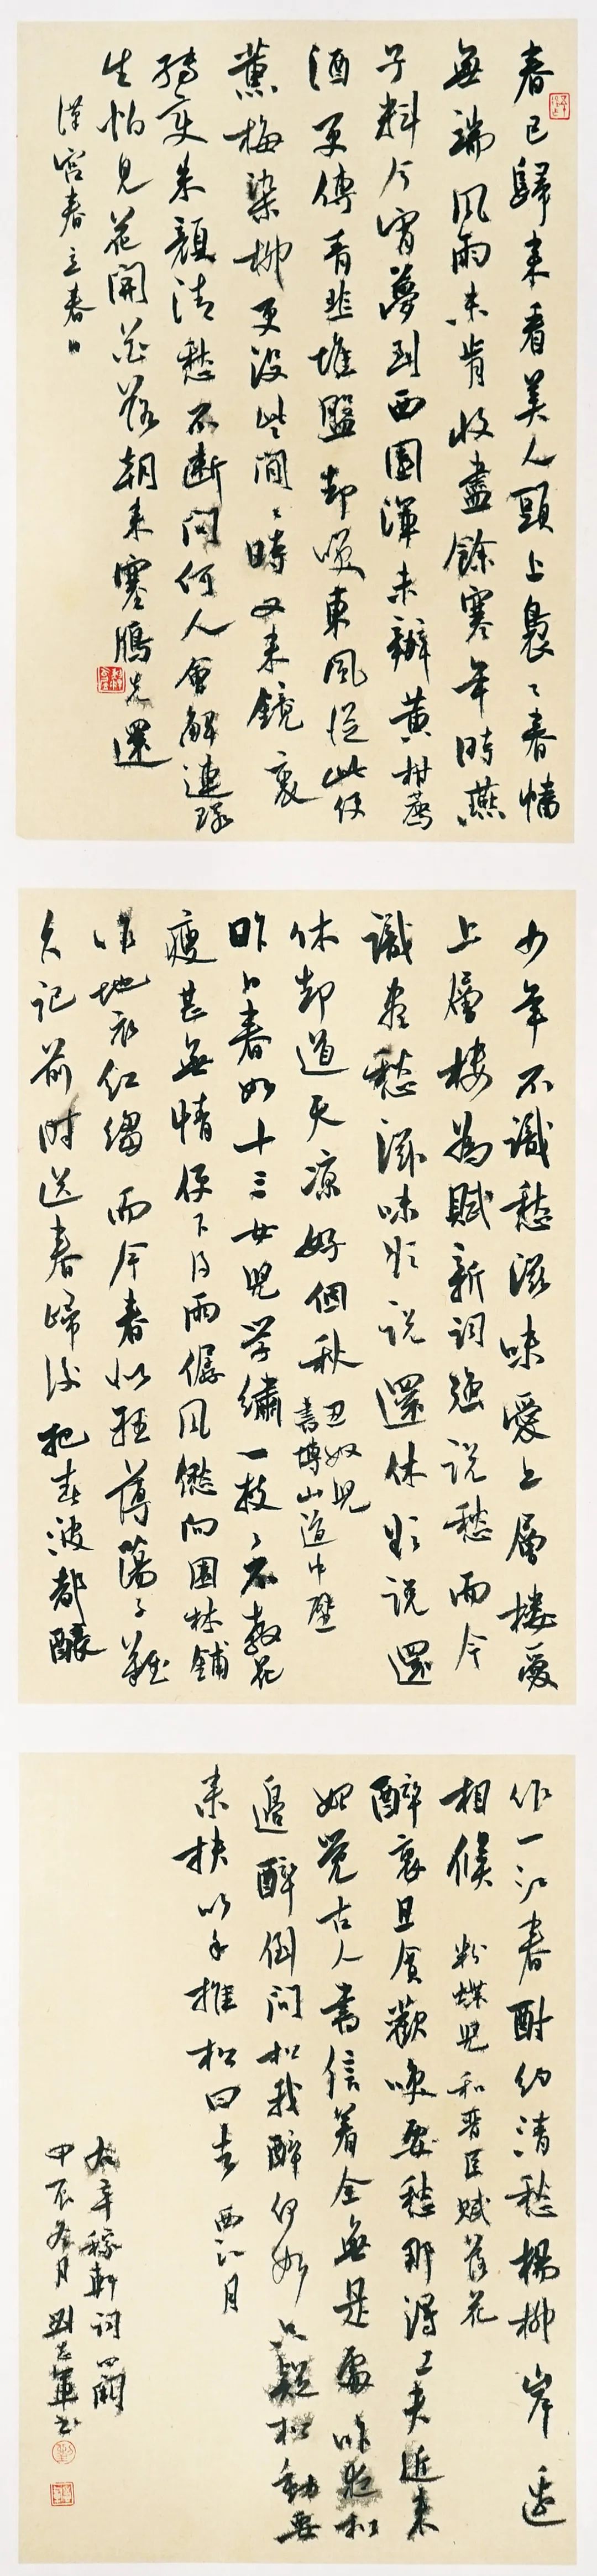 春已歸來看美人頭上裊々春幡
無端風雨未肯收盡餘寒年時燕
子料今宵夢到西園渾未辦黃柑薦
酒更傳青韭堆盤却笑東風從此便
薰梅染柳更沒些閒々時又來鏡裏
轉變朱顏清愁不斷問何人會解連環
生怕見花開花落朝來塞鴈先還
漢宮春立春日
少年不識愁滋味愛上層樓愛
上層樓為賦新詞強說愁而今
識盡愁滋味欲說還休欲說還
休却道天涼好個秋
丑奴兒
書博山道中壁
昨日春如十三女兒學繡一枝々不教花
瘦甚無情便下得雨僝風僽向園林鋪
作地衣紅縐而今春似輕薄蕩子難
久記前時送春歸後把春波都釀
作一江春酎約清愁楊柳岸邊
相候 粉蝶兒和晉臣賦落花
醉裏且貪歡笑要愁那得工夫近來
始覺古人書信着全無是處昨夜松
邊醉倒問松我醉何如只疑松動要
來扶以手推松曰去 西江月
右辛稼軒詞四闋
甲辰冬月劉書